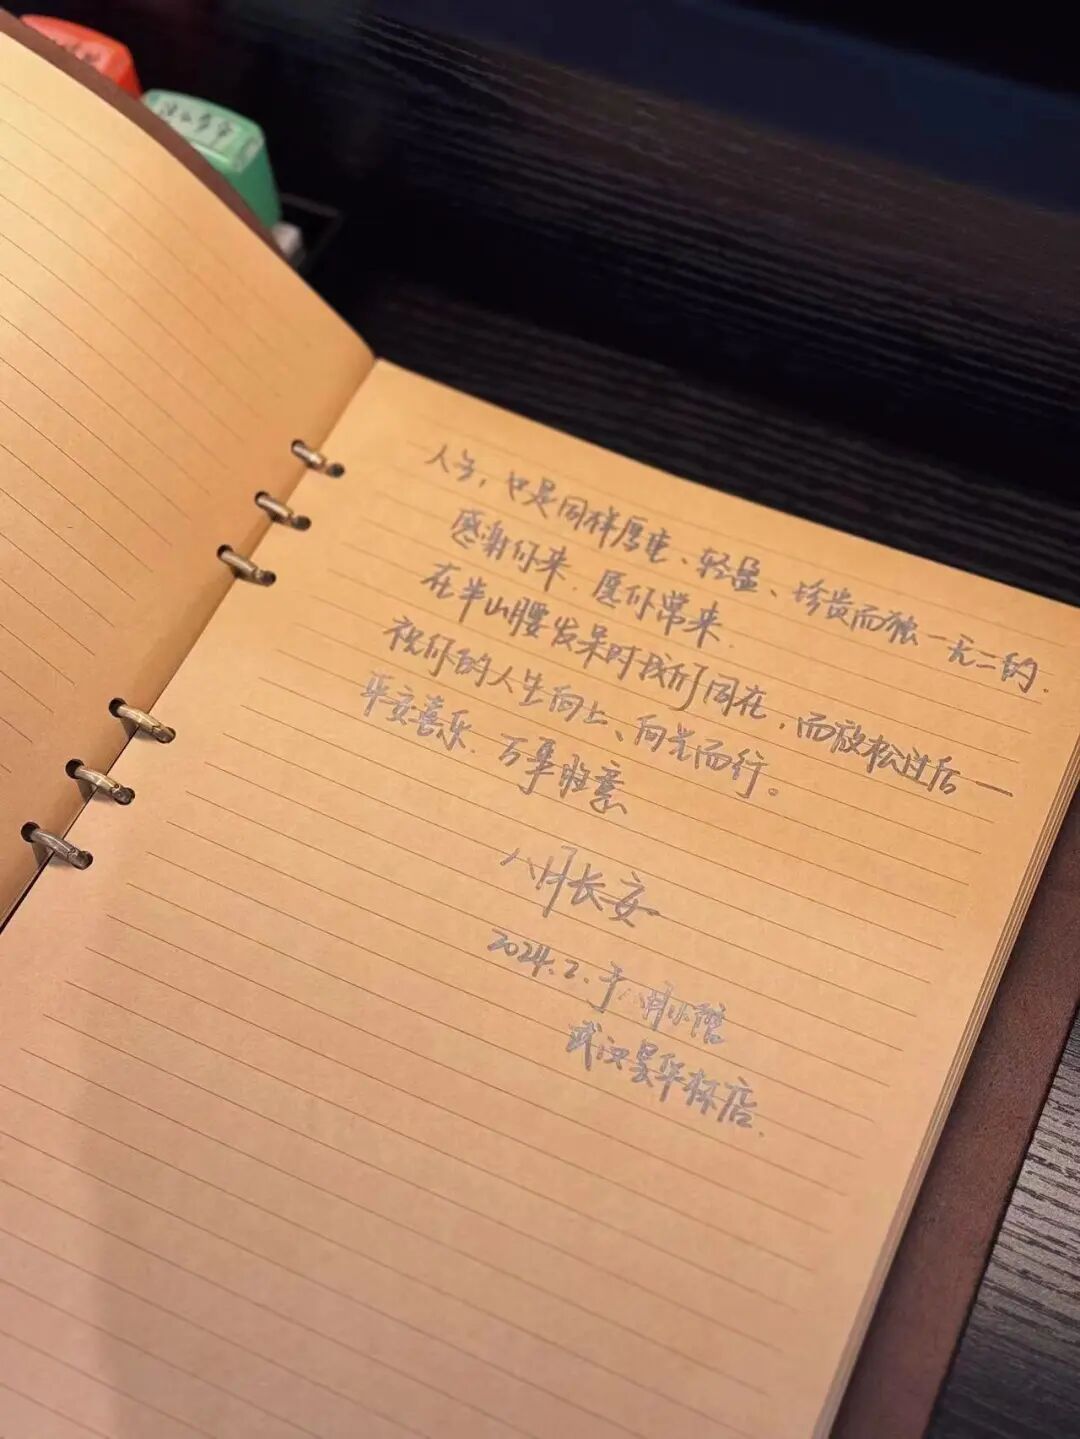 人生，也是同样厚重、轻盈、珍贵而独一无二的.
感谢你来.愿你常来.
在半山腰发呆时我们同在，而放松过后——
祝你的人生向上、向光而行。
平安喜乐.万事胜意
八月长安
2024.2.于八月小馆
武汉昙华林店.